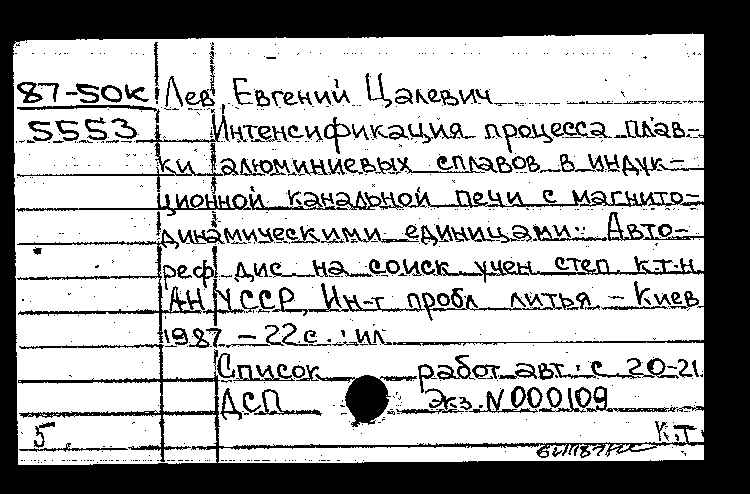 87-50к Лев, Евгений Цалевич
5553 Интенсификация процесса плав-
ки алюминиевых сплавов в индук-
ционной канальной печи с магнито-
динамическими единицами: Авто-
реф дис на соиск учен степ к.т.н
АН УССР, Ин-т пробл литья - Киев
1987 - 22 с. : ил
Список работ авт.: с 20-21
ДСП Экз. N 000109
5. К.т